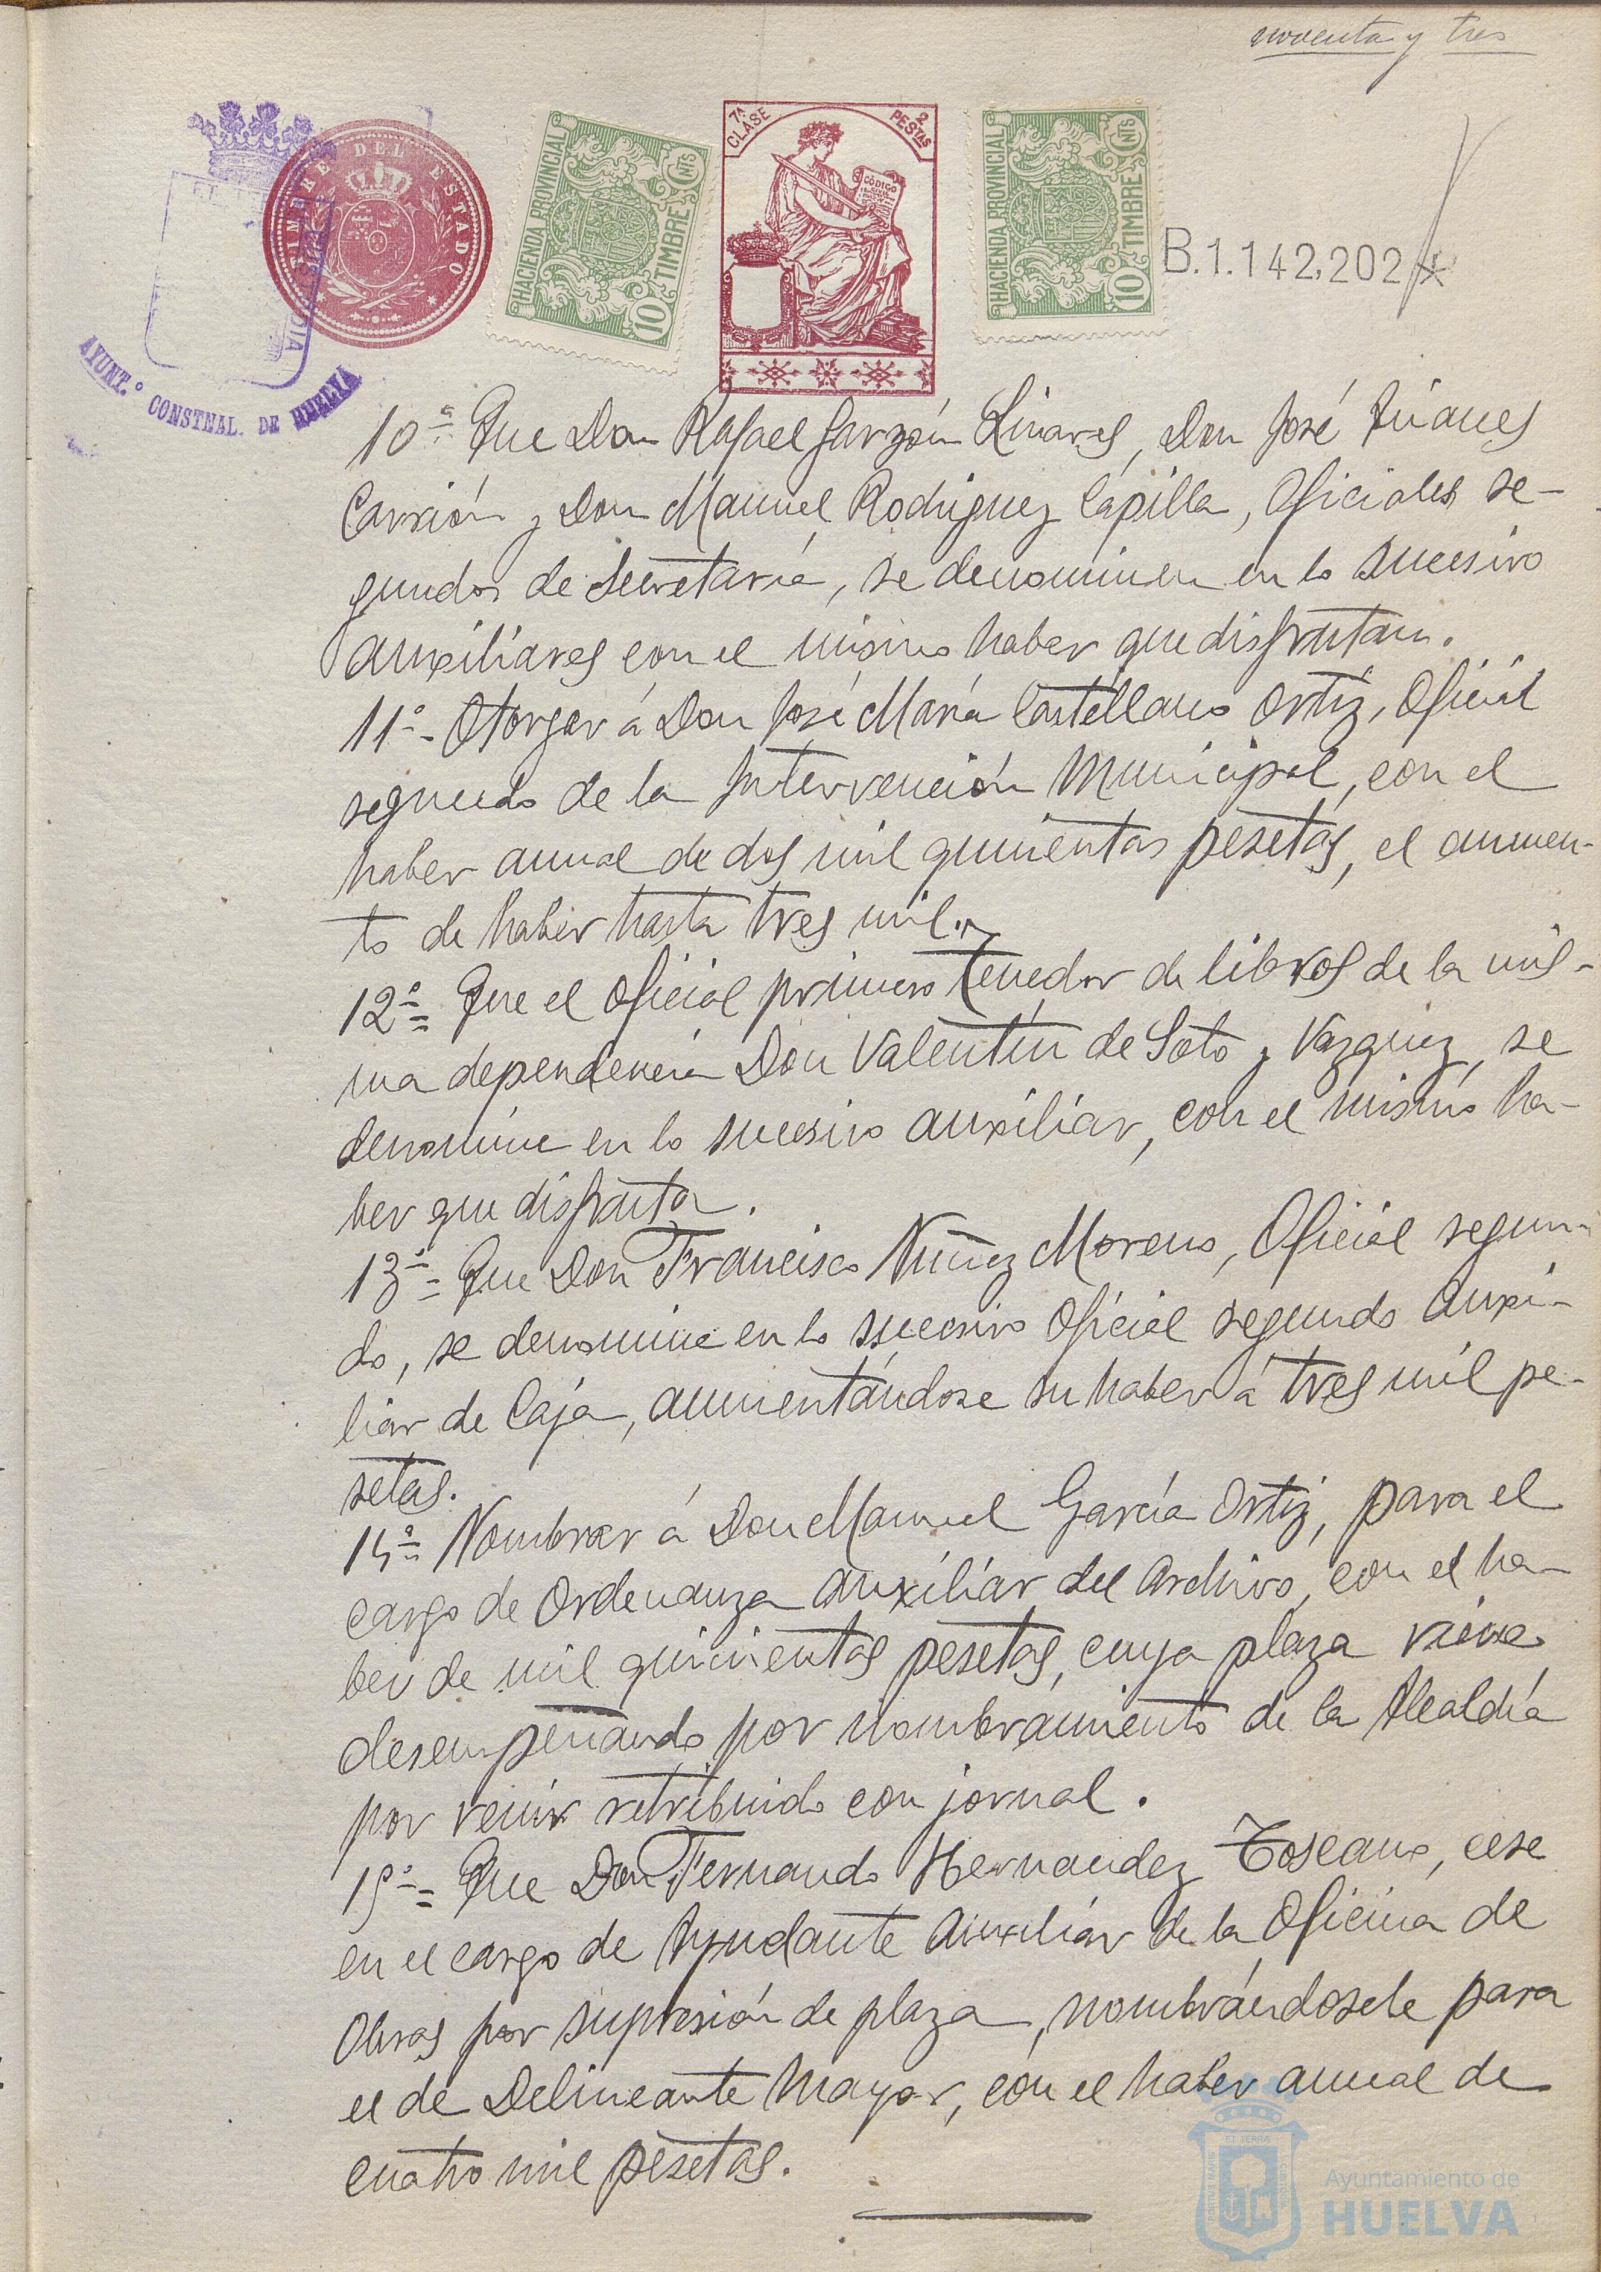 noventa y tres
TIMBRE DEL ESTADO
HACIENDA PROVINCIAL
10 CNTS
TIMBRE
7ª CLASE
2 PESTAS
CÓDIGO
HACIENDA PROVINCIAL
10 CNTS
TIMBRE
B.1.142,202
AYUNT.º CONSTNAL. DE HUELVA
10º = Que Don Rafael Garzón Linares, Don José
Carrión y Don Manuel Rodriguez Capilla, Oficiales se-
gundos de Secretaría, se denominen en lo sucesivo
auxiliares con el mismo haber que disfrutan.
11º - Otorgar á Don José María Castellano Ortiz, Oficial
segundo de la Intervención Municipal, con el
haber anual de dos mil quinientas pesetas, el aumen-
to de haber hasta tres mil.
12º = Que el Oficial primero Tenedor de libros de la mis-
ma dependencia Don Valentín de Soto y Vazquez, se
denomine en lo sucesivo auxiliar, con el mismo ha-
ber que disfruta.
13º = Que Don Francisco Nuñez Moreno, Oficial segun-
do, se denomine en lo sucesivo Oficial segundo Auxi-
liar de Caja, aumentándose su haber á tres mil pe-
setas.
14º = Nombrar á Don Manuel García Ortiz, para el
cargo de Ordenanza auxiliar del Archivo, con el ha-
ber de mil quinientas pesetas, cuya plaza viene
desempeñando por nombramiento de la Alcaldía
por venir retribuido con jornal.
15º = Que Don Fernando Hernandez Toscano, cese
en el cargo de Ayudante Auxiliar de la Oficina de
Obras por supresión de plaza, nombrándosele para
el de Delineante Mayor, con el haber anual de
cuatro mil pesetas.
Ayuntamiento de
HUELVA